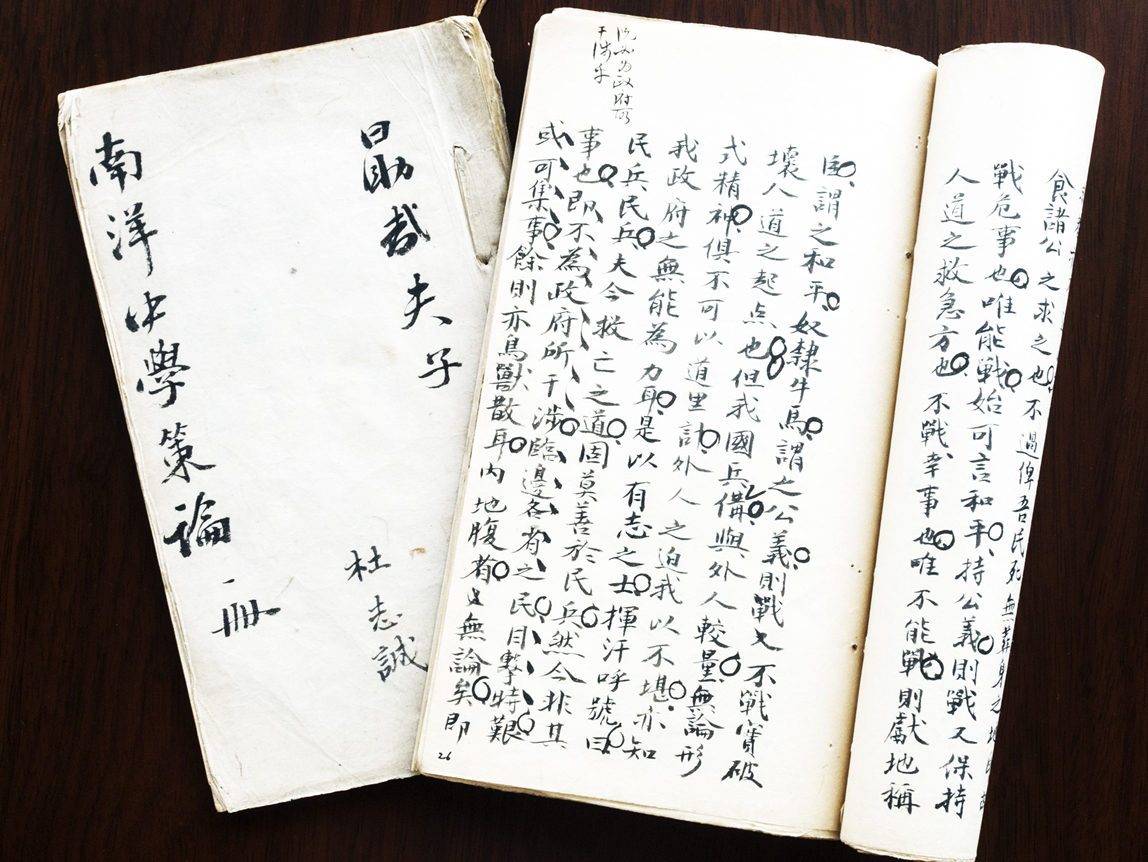 勗哉夫子
杜志誠
南洋中學策論一冊
食諸公之求之也不過俾吾民死無葬身之地
戰危事也唯能戰始可言和平持公義則戰又保持
人道之救急方也不戰幸事也唯不能戰則獻地稱
臣謂之和平奴隸牛馬謂之公義則戰又不戰實破
壞人道之起点也但我國兵備與外人較量無論形
式精神俱不可以道里計外人之迫我以不堪亦知
我政府之無能為力耳是以有志之士揮汗呼號曰
民兵民兵夫今救亡之道固莫善於民兵然今非其
事也即不為政府所干涉臨邊各省之民目擊時艱
或可集事餘則亦鳥獸散耳內地腹省無論矣即
況为政府所
干涉乎
26